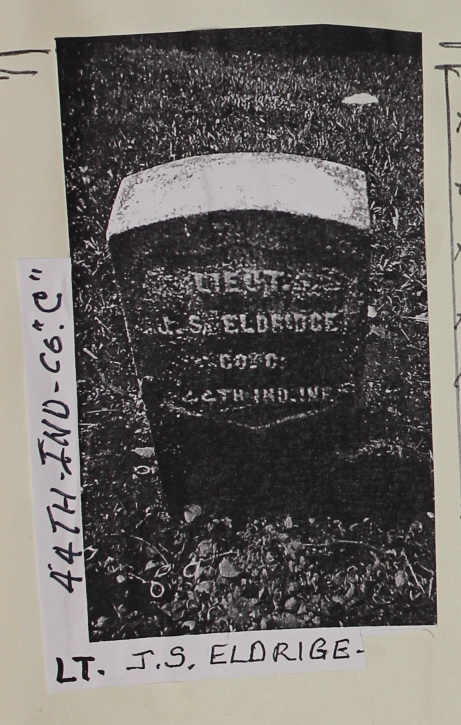 44TH-IND-CO."C"
LIEUT.
J.S. ELDRIDGE
CO."C."
44TH IND. INF.
LT. J.S. ELDRIGE-